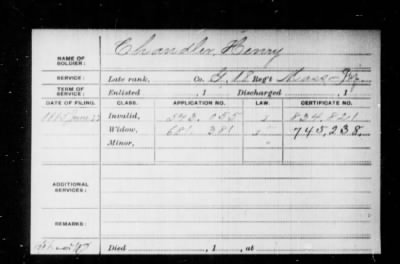 NAME OF SOLDIER: Chandler, Henry
SERVICE: Late rank, Co. G, 18 Reg't Mass Inf
TERM OF SERVICE: Enlisted , 1 Discharged , 1
DATE OF FILING. CLASS. APPLICATION NO. LAW. CERTIFICATE NO.
Invalid, 543.055 834.821
Widow, 681.381 745,238,
Minor,
ADDITIONAL SERVICES:
REMARKS:
Died , 1 , at